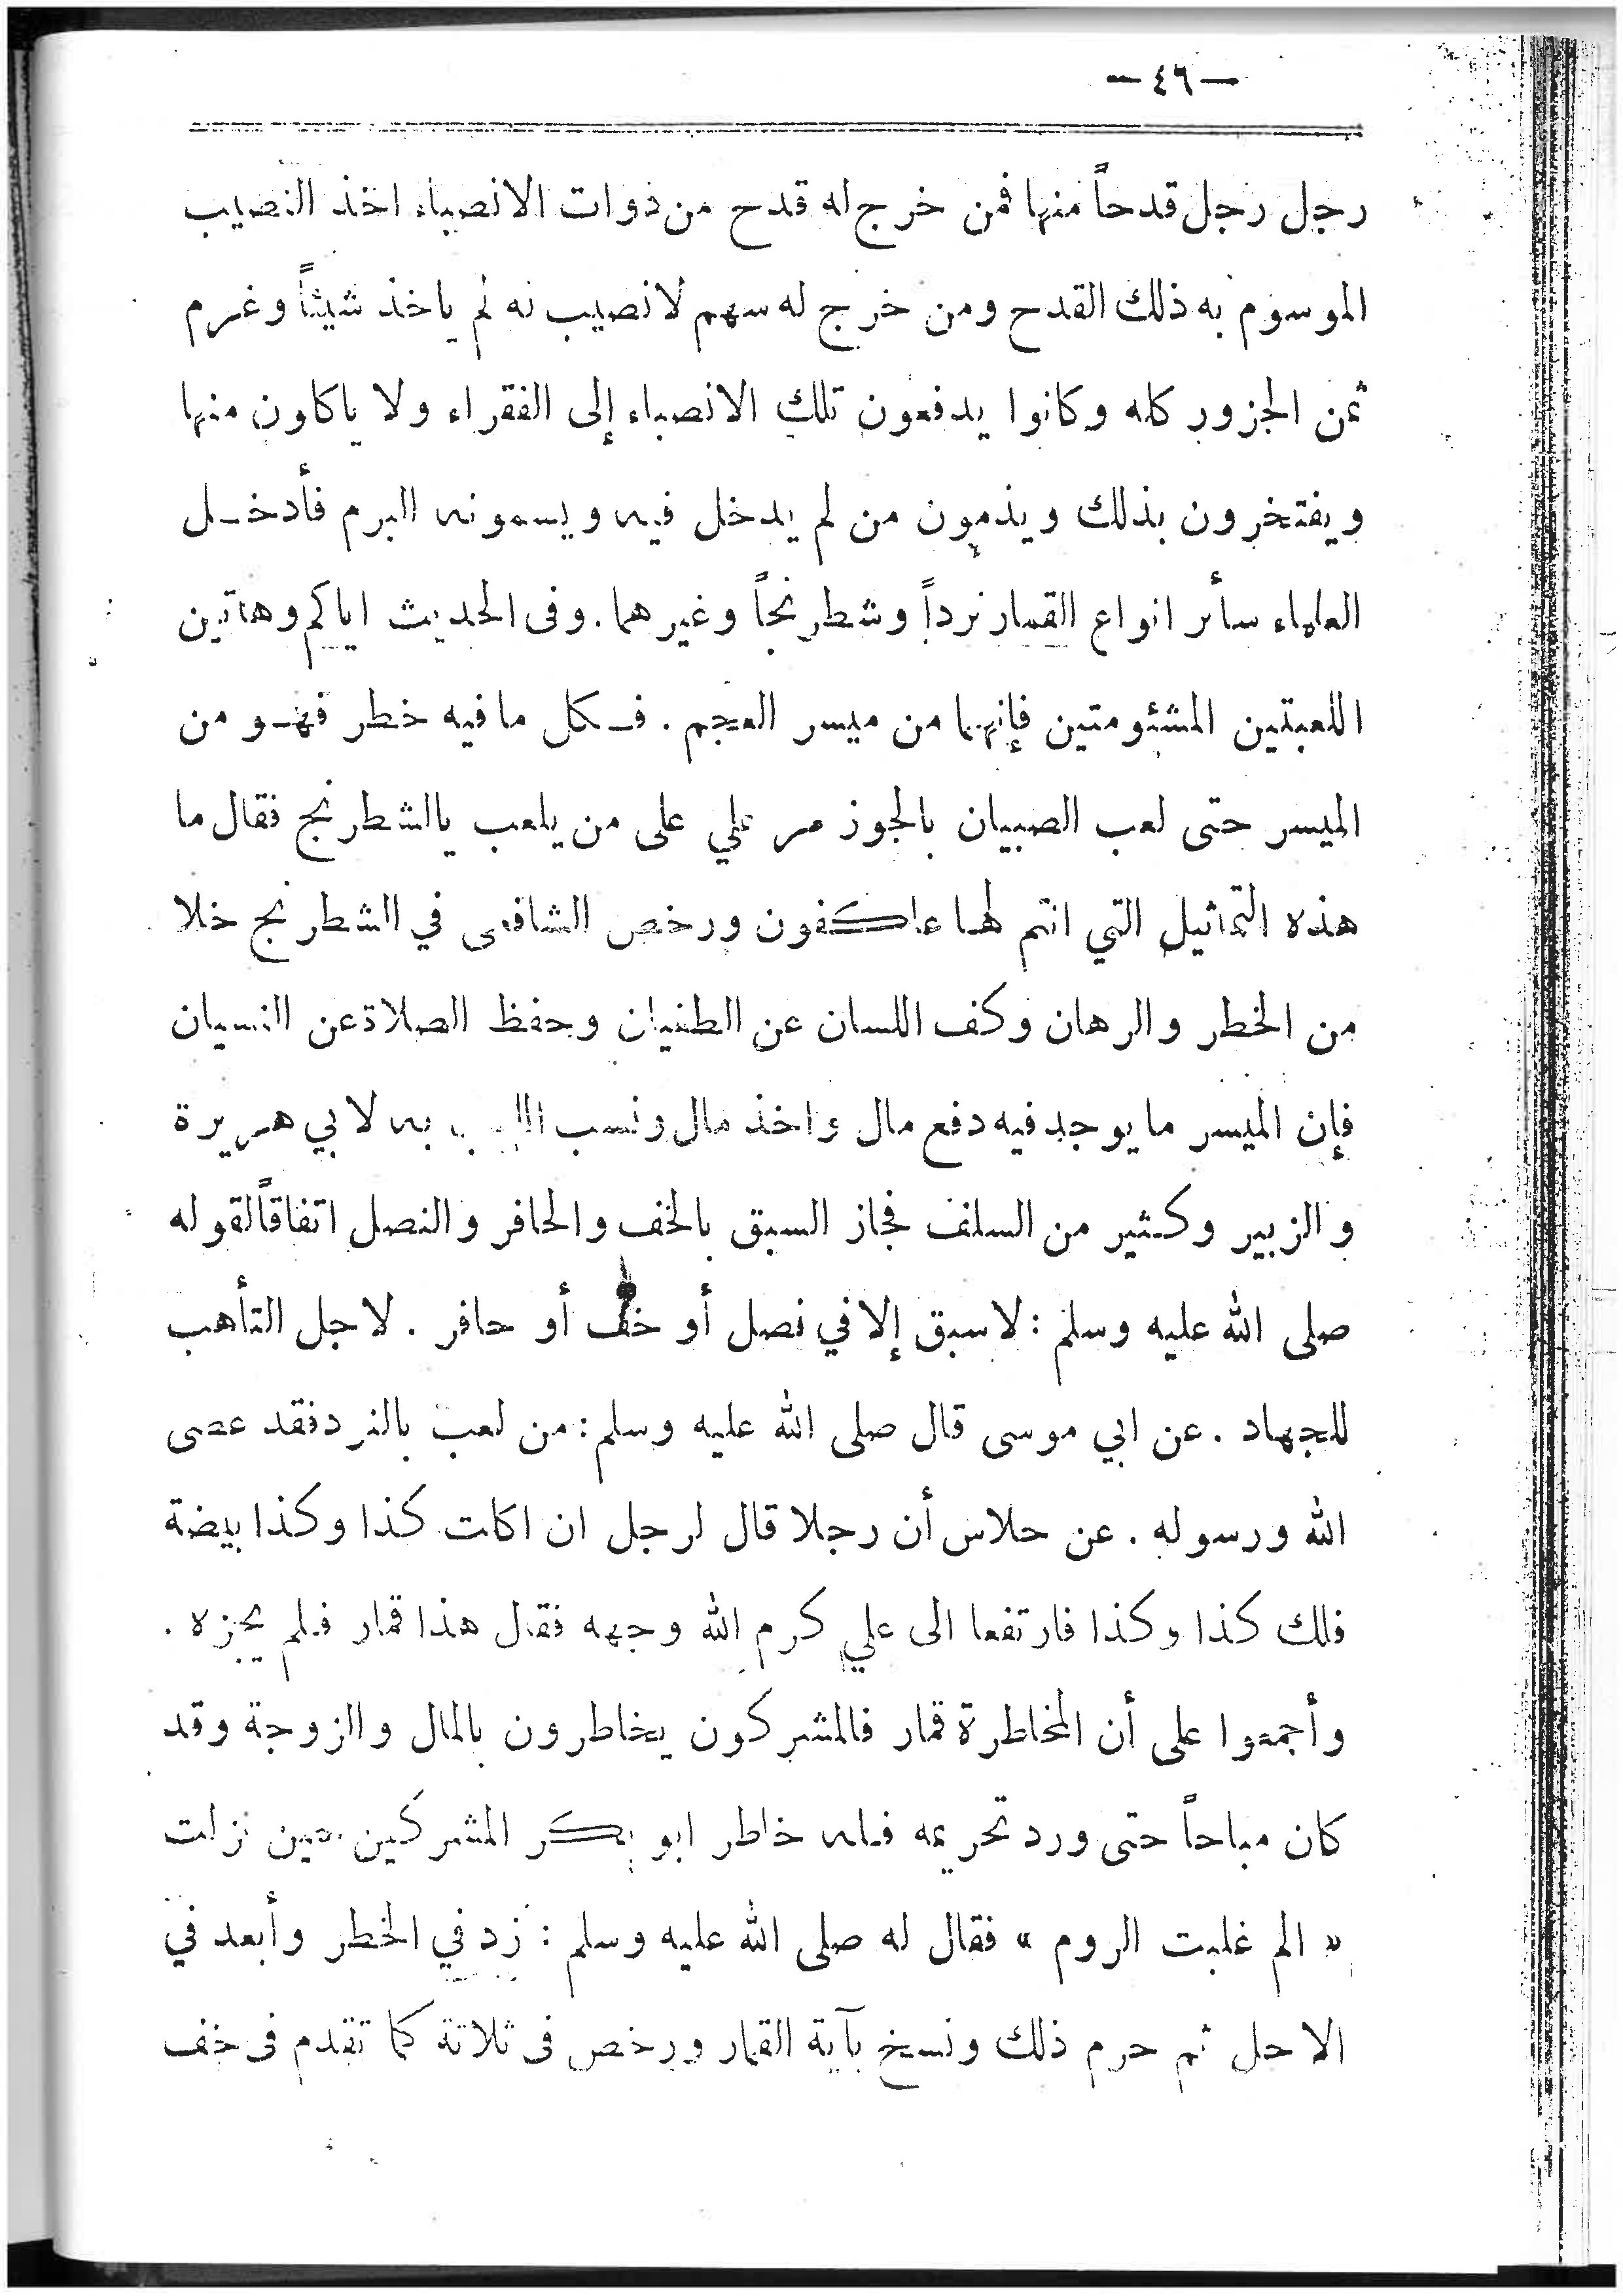 — ٤٦ —
رجل رجل قدحاً منها فمن خرج له قدح من ذوات الانصباء اخذ النصيب
الموسوم به ذلك القدح ومن خرج له سهم لا نصيب له لم ياخذ شيئاً وغرم
ثمن الجزور كله وكانوا يدفعون تلك الانصباء إلى الفقراء ولا ياكلون منها
ويفتخرون بذلك ويذمون من لم يدخل فيه ويسمونه البرم فأدخل
العلماء سأر انواع القمار نرداً وشطرنجاً وغيرهما. وفى الحديث اياكم وهاتين
اللعبتين المشئومتين فإنهما من ميسر العجم . فكل ما فيه خطر فهو من
الميسر حتى لعب الصبيان بالجوز مر علي على من يلعب بالشطرنج فقال ما
هذه التماثيل التي انتم لها عاكفون ورخص الشافعى في الشطرنج خلا
من الخطر والرهان وكف اللسان عن الطغيان وحفظ الصلاة عن النسيان
فإن الميسر ما يوجد فيه دفع مال واخذ مال ونسب به لابي هريرة
والزبير وكثير من السلف فجاز السبق بالخف والحافر والنصل اتفاقاً لقوله
صلى الله عليه وسلم : لا سبق إلا في نصل أو خف أو حافر . لاجل التأهب
للجهاد . عن ابي موسى قال صلى الله عليه وسلم : من لعب بالنرد فقد عصى
الله ورسوله . عن حلاس أن رجلا قال لرجل ان اكلت كذا وكذا بيضة
فلك كذا وكذا فارتفعا الى علي كرم الله وجهه فقال هذا قمار فلم يجزه .
وأجمعوا على أن المخاطرة قمار فالمشركون يخاطرون بالمال والزوجة وقد
كان مباحاً حتى ورد تحريمه خاطر ابو بكر المشركين حين نزلت
« الم غلبت الروم » فقال له صلى الله عليه وسلم : زد في الخطر وأبعد في
الاجل ثم حرم ذلك ونسخ بآية القمار ورخص فى ثلاثة كما تقدم فى خف